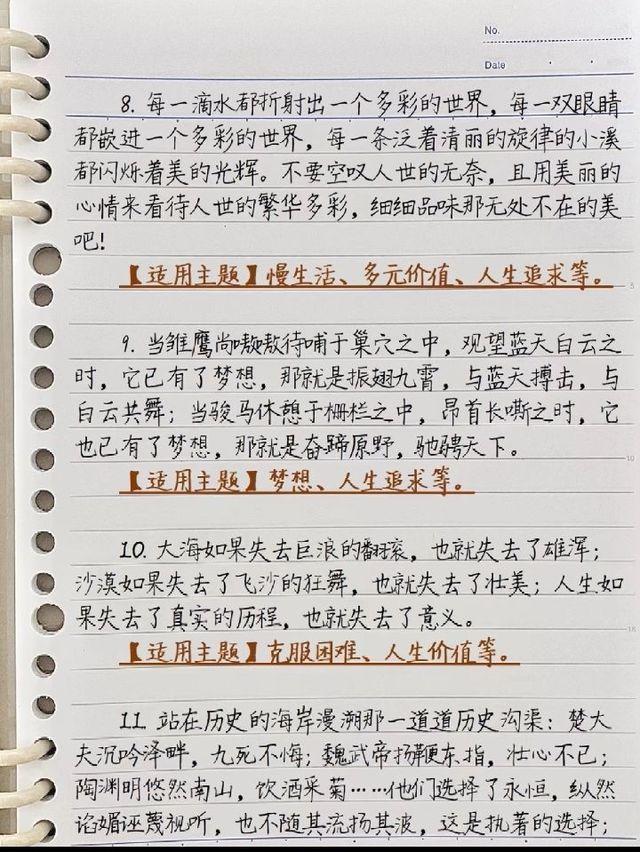 No.
Date
8. 每一滴水都折射出一个多彩的世界，每一双眼睛
都嵌进一个多彩的世界，每一条泛着清丽的旋律的小溪
都闪烁着美的光辉。不要空叹人世的无奈，且用美丽的
心情来看待人世的繁华多彩，细细品味那无处不在的美
吧！
【适用主题】慢生活、多元价值、人生追求等。
9. 当雏鹰尚嗷嗷待哺于巢穴之中，观望蓝天白云之
时，它已有了梦想，那就是振翅九霄，与蓝天搏击，与
白云共舞；当骏马休憩于栅栏之中，昂首长嘶之时，它
也已有了梦想，那就是奋蹄原野，驰骋天下。
【适用主题】梦想、人生追求等。
10. 大海如果失去巨浪的翻滚，也就失去了雄浑；
沙漠如果失去了飞沙的狂舞，也就失去了壮美；人生如
果失去了真实的历程，也就失去了意义。
【适用主题】克服困难、人生价值等。
11. 站在历史的海岸漫溯那一道道历史沟渠：楚大
夫沉吟泽畔，九死不悔；魏武帝扬鞭东指，壮心不已；
陶渊明悠然南山，饮酒采菊……他们选择了永恒，纵然
谄媚诬蔑视听，也不随其流扬其波，这是执著的选择；